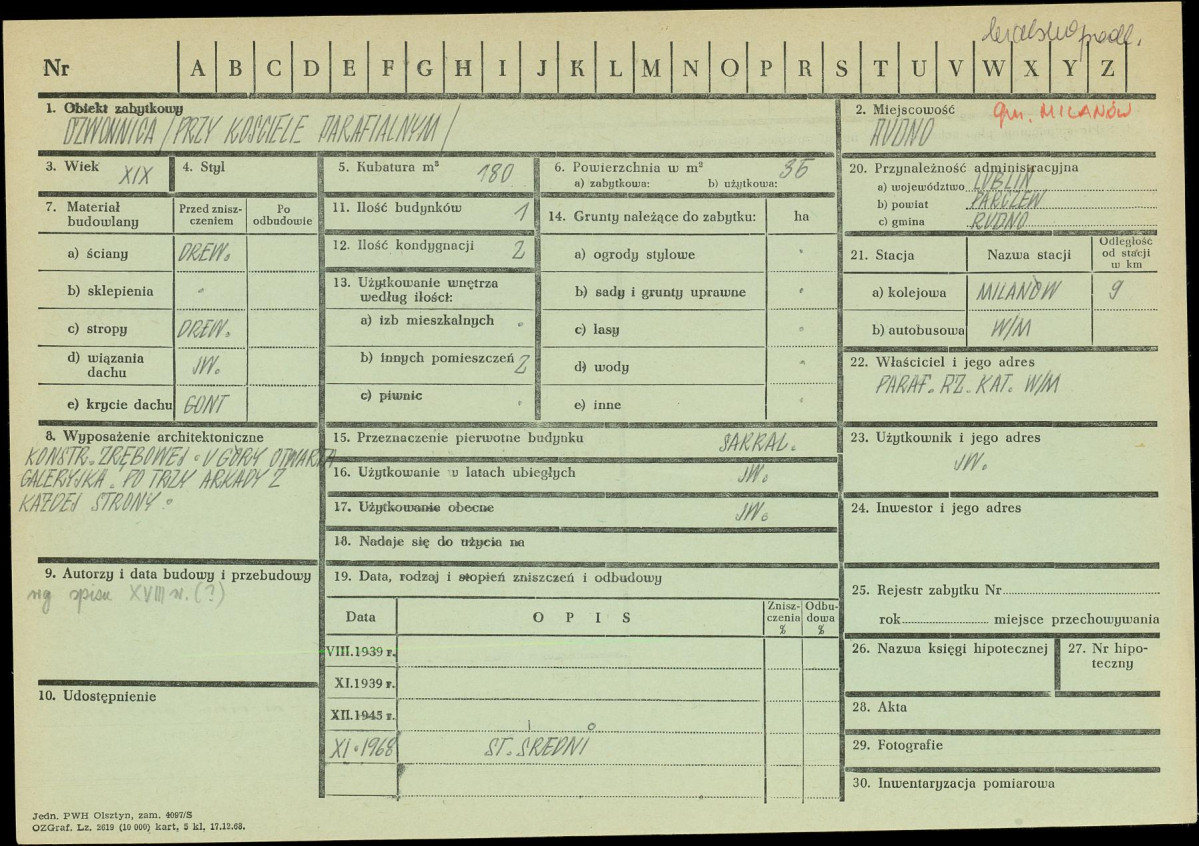 bialskopodl.
Nr A B C D E F G H I J K L M N O P R S T U V W X Y Z
1. Obiekt zabytkowy
DZWONNICA /PRZY KOŚCIELE PARAFIALNYM/
2. Miejscowość
gm. MILANÓW
RUDNO
3. Wiek XIX
4. Styl
5. Kubatura m³ 180
6. Powierzchnia w m² 35
a) zabytkowa: b) użytkowa:
20. Przynależność administracyjna
a) województwo LUBLIN
b) powiat PARCZEW
c) gmina RUDNO
7. Materiał budowlany
Przed zniszczeniem
Po odbudowie
a) ściany DREW.
b) sklepienia -
c) stropy DREW.
d) wiązania dachu JW.
e) krycie dachu GONT
11. Ilość budynków 1
12. Ilość kondygnacji 2
13. Użytkowanie wnętrza
według ilości:
a) izb mieszkalnych -
b) innych pomieszczeń 2
c) piwnic -
14. Grunty należące do zabytku: ha
a) ogrody stylowe -
b) sady i grunty uprawne -
c) lasy -
d) wody -
e) inne -
21. Stacja Nazwa stacji Odległość od stacji w km
a) kolejowa MILANÓW 9
b) autobusowa W/M
22. Właściciel i jego adres
PARAF. RZ. KAT. W/M
8. Wyposażenie architektoniczne
KONSTR. ZRĘBOWEJ. U GÓRY OTWARTA
GALERYJKA. PO TRZY ARKADY Z
KAŻDEJ STRONY.
15. Przeznaczenie pierwotne budynku SAKRAL.
16. Użytkowanie w latach ubiegłych JW.
17. Użytkowanie obecne JW.
18. Nadaje się do użycia na
23. Użytkownik i jego adres
JW.
24. Inwestor i jego adres
9. Autorzy i data budowy i przebudowy
wg spisu XVIII w. (?)
19. Data, rodzaj i stopień zniszczeń i odbudowy
Data OPIS Zniszczenia % Odbudowa %
VIII.1939 r.
XI.1939 r.
XII.1945 r.
XI.1968 ST. ŚREDNI
25. Rejestr zabytku Nr
rok miejsce przechowywania
26. Nazwa księgi hipotecznej
27. Nr hipoteczny
10. Udostępnienie
28. Akta
29. Fotografie
30. Inwentaryzacja pomiarowa
Jedn. PWH Olsztyn, zam. 4097/S
OZGraf. Lz. 2619 (10 000) kart, 5 kl, 17.12.68.